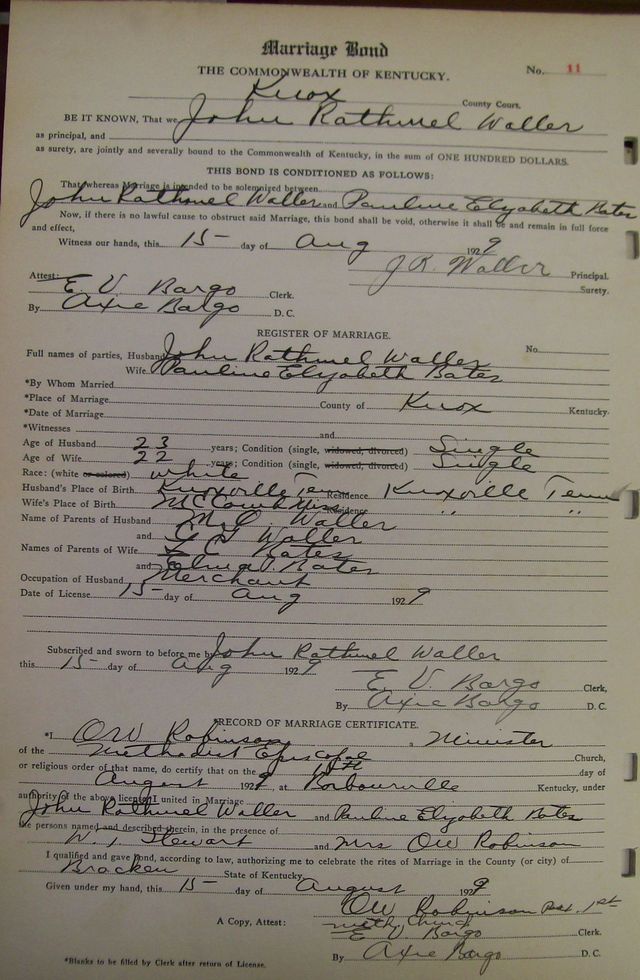 Marriage Bond
THE COMMONWEALTH OF KENTUCKY.
No. 11
Knox County Court.
BE IT KNOWN, That we, John Rathmel Waller
as principal, and
as surety, are jointly and severally bound to the Commonwealth of Kentucky, in the sum of ONE HUNDRED DOLLARS.
THIS BOND IS CONDITIONED AS FOLLOWS:
That whereas Marriage is intended to be solemnized between
John Rathmel Waller and Pauline Elizabeth Bates
Now, if there is no lawful cause to obstruct said Marriage, this bond shall be void, otherwise it shall be and remain in full force
and effect,
Witness our hands, this 15 day of Aug 1929
J R Waller Principal.
Surety.
Attest:
E V Bargo Clerk.
By Axie Bargo D. C.
REGISTER OF MARRIAGE.
No.
Full names of parties, Husband John Rathmel Waller
Wife Pauline Elizabeth Bates
*By Whom Married
*Place of Marriage County of Knox Kentucky.
*Date of Marriage
*Witnesses and
Age of Husband 23 years; Condition (single, widowed, divorced) Single
Age of Wife 22 years; Condition (single, widowed, divorced) Single
Race: (white or colored) white
Husband's Place of Birth Knoxville Tenn Residence Knoxville Tenn
Wife's Place of Birth McComb Miss Residence " "
Name of Parents of Husband Waller
and Waller
Names of Parents of Wife E Bates
and Bates
Occupation of Husband Merchant
Date of License 15 day of Aug 1929
Subscribed and sworn to before me by John Rathmel Waller
this 15 day of Aug 1929
E. V. Bargo Clerk,
By Axie Bargo D. C.
RECORD OF MARRIAGE CERTIFICATE.
*I OW Robinson, Minister
of the Methodist Episcopal Church,
or religious order of that name, do certify that on the 15th day of
August 1929, at Barbourville Kentucky, under
authority of the above license I united in Marriage
John Rathmel Waller and Pauline Elizabeth Bates
the persons named and described therein, in the presence of
Stewart and Mrs OW Robinson
I qualified and gave bond, according to law, authorizing me to celebrate the rites of Marriage in the County (or city) of
Bracken State of Kentucky
Given under my hand, this 15 day of August 1929
OW Robinson 1st
Meth Church
A Copy, Attest: E V Bargo Clerk.
By Axie Bargo D. C.
*Blanks to be filled by Clerk after return of License.